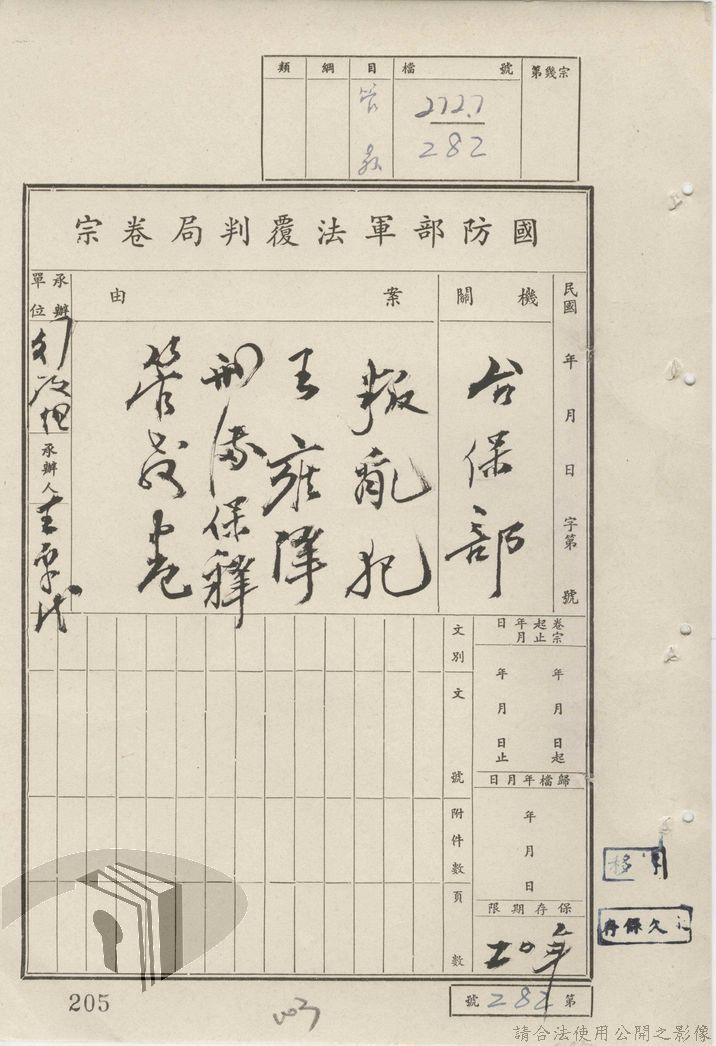 類 綱 目 檔號 第幾宗
管教 2727 282
國防部軍法覆判局卷宗
民國 年 月 日 字第 號
機關
台保部
案由
叛亂犯
王雍澤
刑滿保釋
管教卷
承辦單位
承辦人
卷宗起止年月日
年 月 日起
年 月 日止
歸檔年月日
年 月 日
保存期限
二十年
文別
文號
附件數
頁數
第 282 號
移
久保存
205
003
請合法使用公開之影像